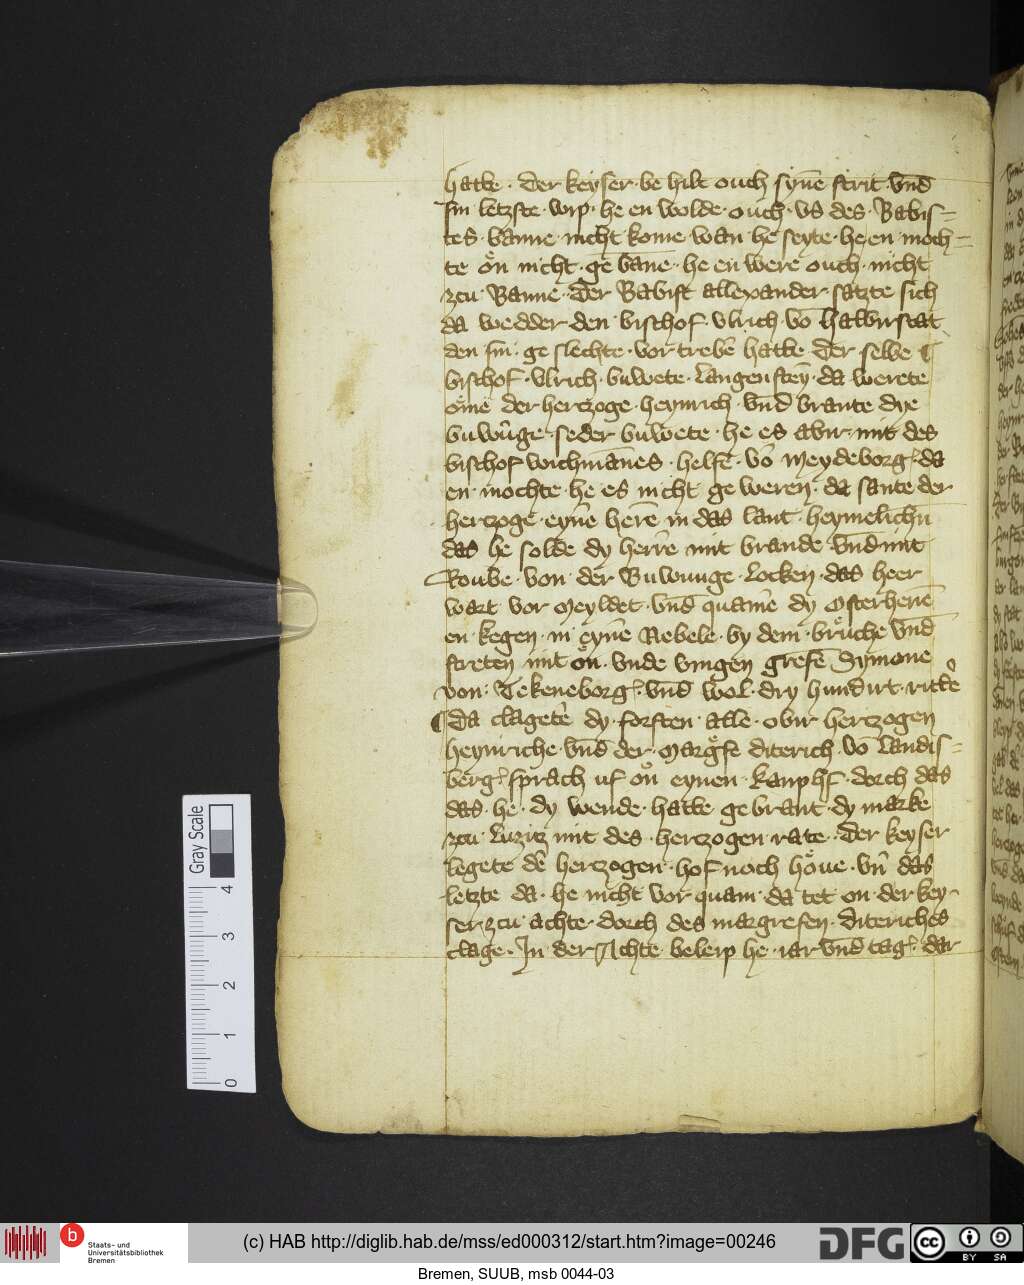 hatte · der keyser · be hilt ouch syn̄e strit · vnd̄
sin letzste · wip · he en wolde · ouch · vs des · Babis=
tes · banne · nicht kome wan he seyte · he en moch=
te on̊ nicht · ge bān̄e · he en were ouch · nicht
zcu · Banne · der Babist allexander · satzte sich
da wedder den · bischof · vlrich · vō halbirstat
den sin · ge slechte · vor trebē hatte der selbe ¶
bischof · vlrich · buwete · langensteȳ · da werete
om̊e der hertzoge · heynrich · vnd̄ brante dye
buwūge · seder buwete · he es abir · mit des
bischof wichmān̄es · helfē · vō meydeborg · da
en · mochte · he es nicht ge weren · da sante der
hertzoge · eyn̄e herē in das lant · heymelichn
das he solde dy herrē mit brande · vnd̄ mit
Roube · von · der Buwunge · locken · das heer
wart vor meyldet · vnd̄ quam̄e dy osterherrē
en · kegen · in eyn̄e Nebele · by dem · brůche vnd̄
streten mit on̊ · vnde vingen grefē Symone
von · Tekeneborg · vnd̄ wol · dry hundirt · ritt̄e
¶ Da clagetē dy · forsten · alle · obir hertzogen
heynriche · vnd̄ der · margf̊e diterich · vō landis=
berg · sprach uf on̊ eynen · kamphf · dorch das
das · he · dy wende · hatte gebrant · dy marke
zcu · luzitz mit des · hertzogen · rate · der keyser
legete dē hertzogen · hof noch hoůe · vn̄ das
letzte da · he nicht vor quam · da tet on · der key-
ser · zcu achte · dorch des margrefen · diteriches
clage · In der Achte · beleip he · iar vnd̄ tag · dar
Gray Scale
4
3
2
1
0
b
Staats- und
Universitätsbibliothek
Bremen
(c) HAB http://diglib.hab.de/mss/ed000312/start.htm?image=00246
DFG
cc
BY SA
Bremen, SUUB, msb 0044-03